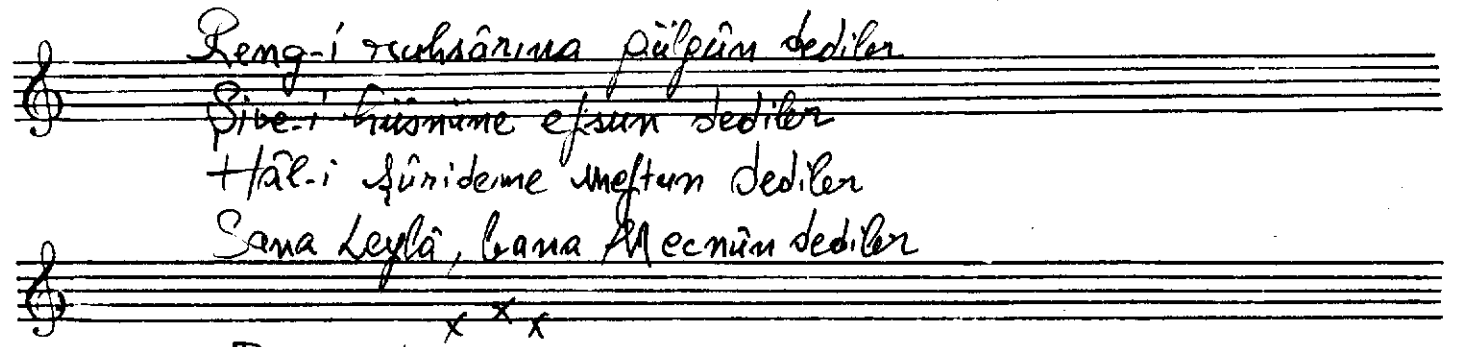 Reng-i ruhsârına gülgûn dediler
Şive-i hüsnüne efsun dediler
Hâl-i şûrideme meftun dediler
Sana Leylâ, bana Mecnûn dediler
x x x